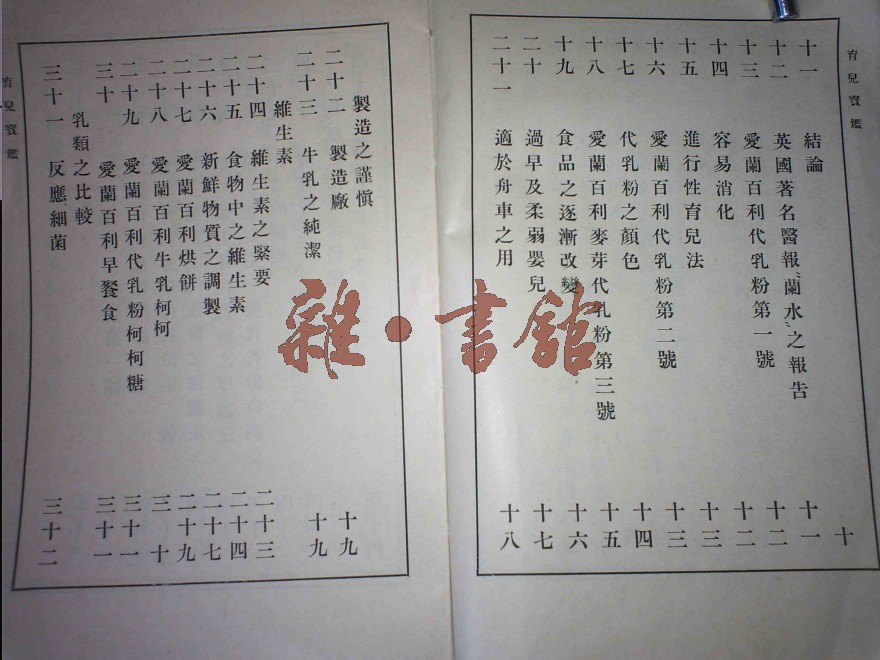 育兒寶鑑
十一 結論 十
十二 英國著名醫報“蘭水”之報告 十一
十三 愛蘭百利代乳粉第一號 十二
十四 容易消化 十二
十五 進行性育兒法 十三
十六 愛蘭百利代乳粉第二號 十三
十七 代乳粉之顏色 十四
十八 愛蘭百利麥芽代乳粉第三號 十五
十九 食品之逐漸改變 十六
二十 過早及柔弱嬰兒 十七
二十一 適於舟車之用 十八
製造之謹慎
二十二 製造廠 十九
二十三 牛乳之純潔 十九
維生素
二十四 維生素之緊要 二十三
二十五 食物中之維生素 二十四
二十六 新鮮物質之調製 二十七
二十七 愛蘭百利烘餅 二十九
二十八 愛蘭百利牛乳柯柯 三十
二十九 愛蘭百利代乳粉柯柯糖 三十一
三十 愛蘭百利早餐食 三十一
乳類之比較
三十一 反應、細菌 三十二
育兒寶鑑
雜·書館